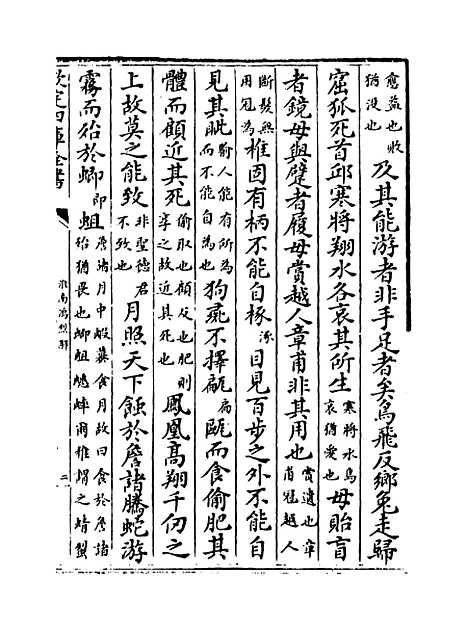 愈益也收猶没也及其能游者非手足者矣鳥飛反鄉兔走歸
窟狐死首邱寒將翔水各哀其所生寒將水鳥哀猶愛也毋貽盲
者鏡毋與躄者履毋賞越人章甫非其用也賞遺也章甫冠越人
斷髮無用冠為椎固有柄不能自椓涿目見百步之外不能自
見其眦喻人能有所為而不能自為也狗彘不擇甂扁甌而食偷肥其
體而顧近其死偷取也顧反也肥則享之故近其死也鳳凰高翔千仞之
上故莫之能致非聖德君不致也月照天下蝕於詹諸騰蛇游
霧而殆於蝍即蛆詹諸月中蝦蟆食月故曰食於詹諸殆猶畏也蝍蛆蟋蟀爾雅謂之蜻蛚
欽定四庫全書
淮南鴻烈解
二